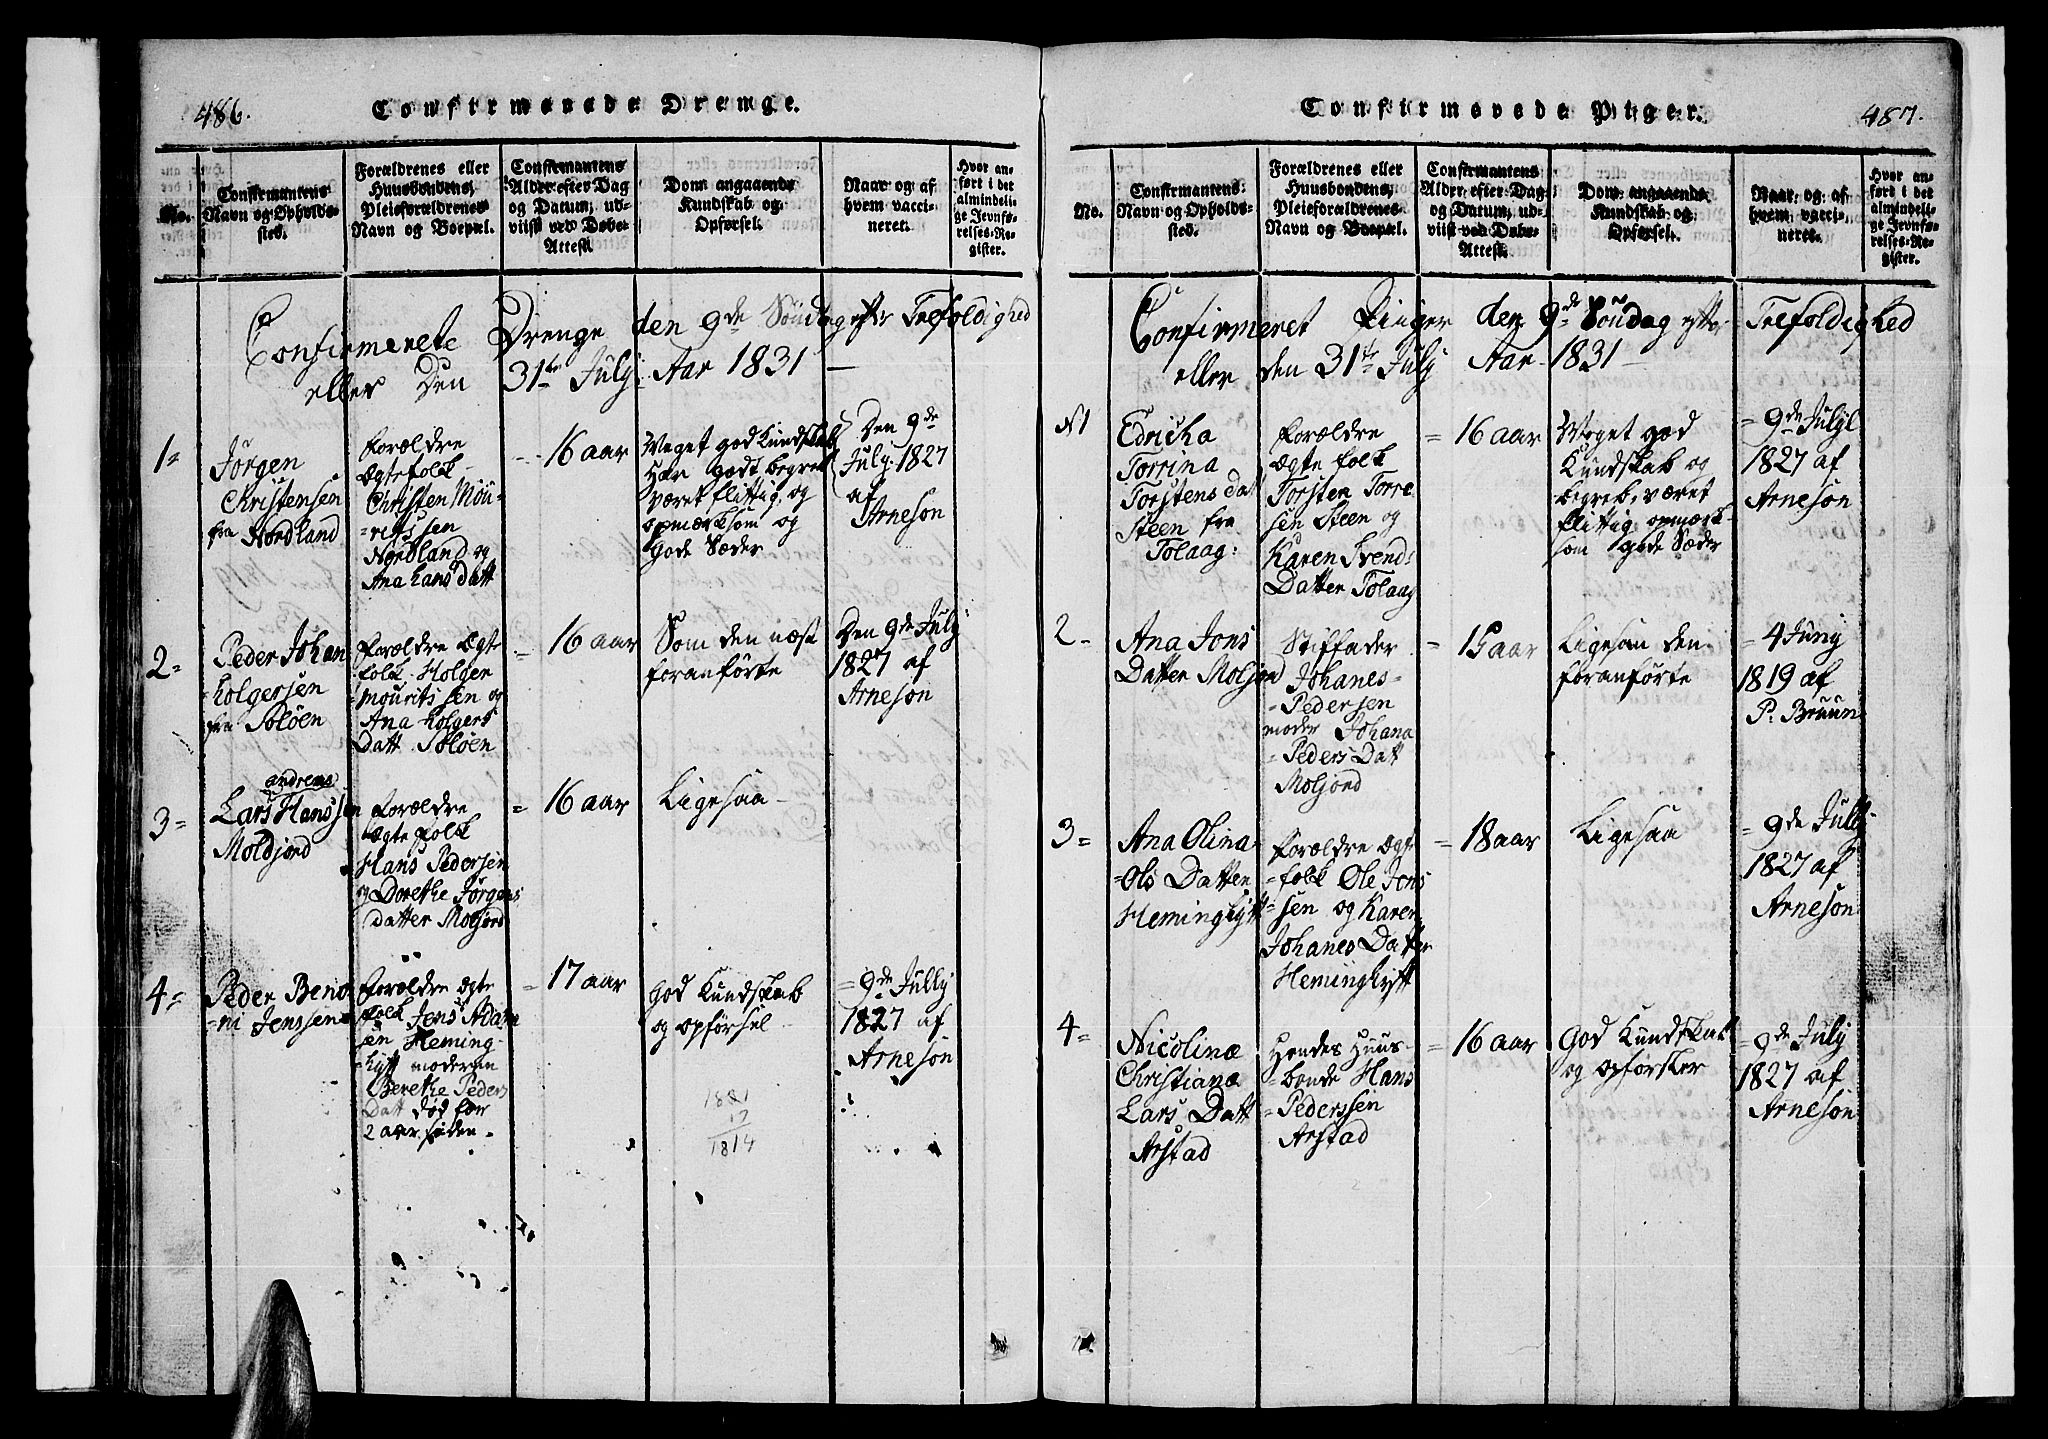 486.
Confirmerede Drenge.
No.
Confirmantens
Navn og Opholds-
sted.
Forældrenes eller
Huusbondens,
Pleieforældrenes
Navn og Boepæl.
Confirmantens
Alder efter Dag
og Datum, ud-
viist ved Døbe-
Attest.
Dom angaaende
Kundskab og
Opførsel.
Naar og af
hvem vacci-
neret.
Hvor an-
ført i det
almindeli-
ge Jevnfø-
relses-Re-
gister.
Confirmerete Drenge den 9de Söndag efter Trefoldighed
eller Den 31te July Aar 1831 —
1=
Jörgen
Christensen
fra Nordland
Forældre
Ægtefolk
Christen Möu-
=ritssen
Nordland og
Ana hans Datt
16 aar
Meget god Kundskab
Har godt begreb
været flittig, og
opmærksom og
gode Sæder
Den 9de
July 1827
af
Arneson
2=
Peder Johan
holgersen
fra Soløen
Forældre Ægte
folk Holger
mouritssen og
Ana holgers
Datt Soløen
=
16 aar
Som den næst
foranförte
Den 9de July
1827 af
Arneson
3=
andreas
Lars Hanssen
Moldjord
Forældre
Ægte folk
Hans Pedersen
og Dorethe Jörgens
datter Moljord
=
16 aar
Ligesaa-
4=
Peder Beno
=ni Jenssen
Forældre Ægte
folk Jens Adam
sen Heming-
hytt moderen
Berethe Peders
Datt død for
2 aar siden-
=
17 aar
god Kundskab
og opförsel
=9de Jully
1827 af
Arneson
1831
17
1814
487.
Confirmerede Piger.
No.
Confirmantens
Navn og Opholds-
sted.
Forældrenes eller
Huusbondens,
Pleieforældrenes
Navn og Boepæl.
Confirmantens
Alder efter Dag
og Datum, ud-
viist ved Døbe-
Attest.
Dom angaaende
Kundskab og
Opførsel.
Naar og af
hvem vacci-
neret.
Hvor an-
ført i det
almindeli-
ge Jevnfø-
relses-Re-
gister.
Confirmeret Piger den 9de Söndag efter Trefoldighed
eller den 31te July Aar 1831 —
N1
Edricha
Torrina
Torstens dat
Steen fra
Tolaag:
Forældre
Ægte folk
Torsten Torre
sen Steen og
Karen Svend=
Datter Tolaag
=
16 aar
Meget god
Kundskab og
begreb, været
flittig, opmærk-
som gode Sæder
= 9de July
1827 af
Arneson
2-
Ana Jons
Datter Moljord
Stiffader
Johanes-
=Pedersen
moder Johana
=Peders Datt
Moljord
=
15 aar
Ligesaa den
foranförte
= 4 Juny
1819 af
P. Bruun
3=
Ana Olina
=Ols Datter
Heminghytt
Forældre Ægt
=folk Ole Jens
=sen og Karen
Johanes Datter
Heminghytt
=
18 aar
Ligesaa
= 9de July
1827 af
Arneson
4=
Nicolina
Christiana
Lars Datt
Arstad
Hendes Huus-
=bonde Hans
=Pederssen
Arstad
=
16 aar
God Kundskab
og opförsler
=9de July
1827 af
Arneson